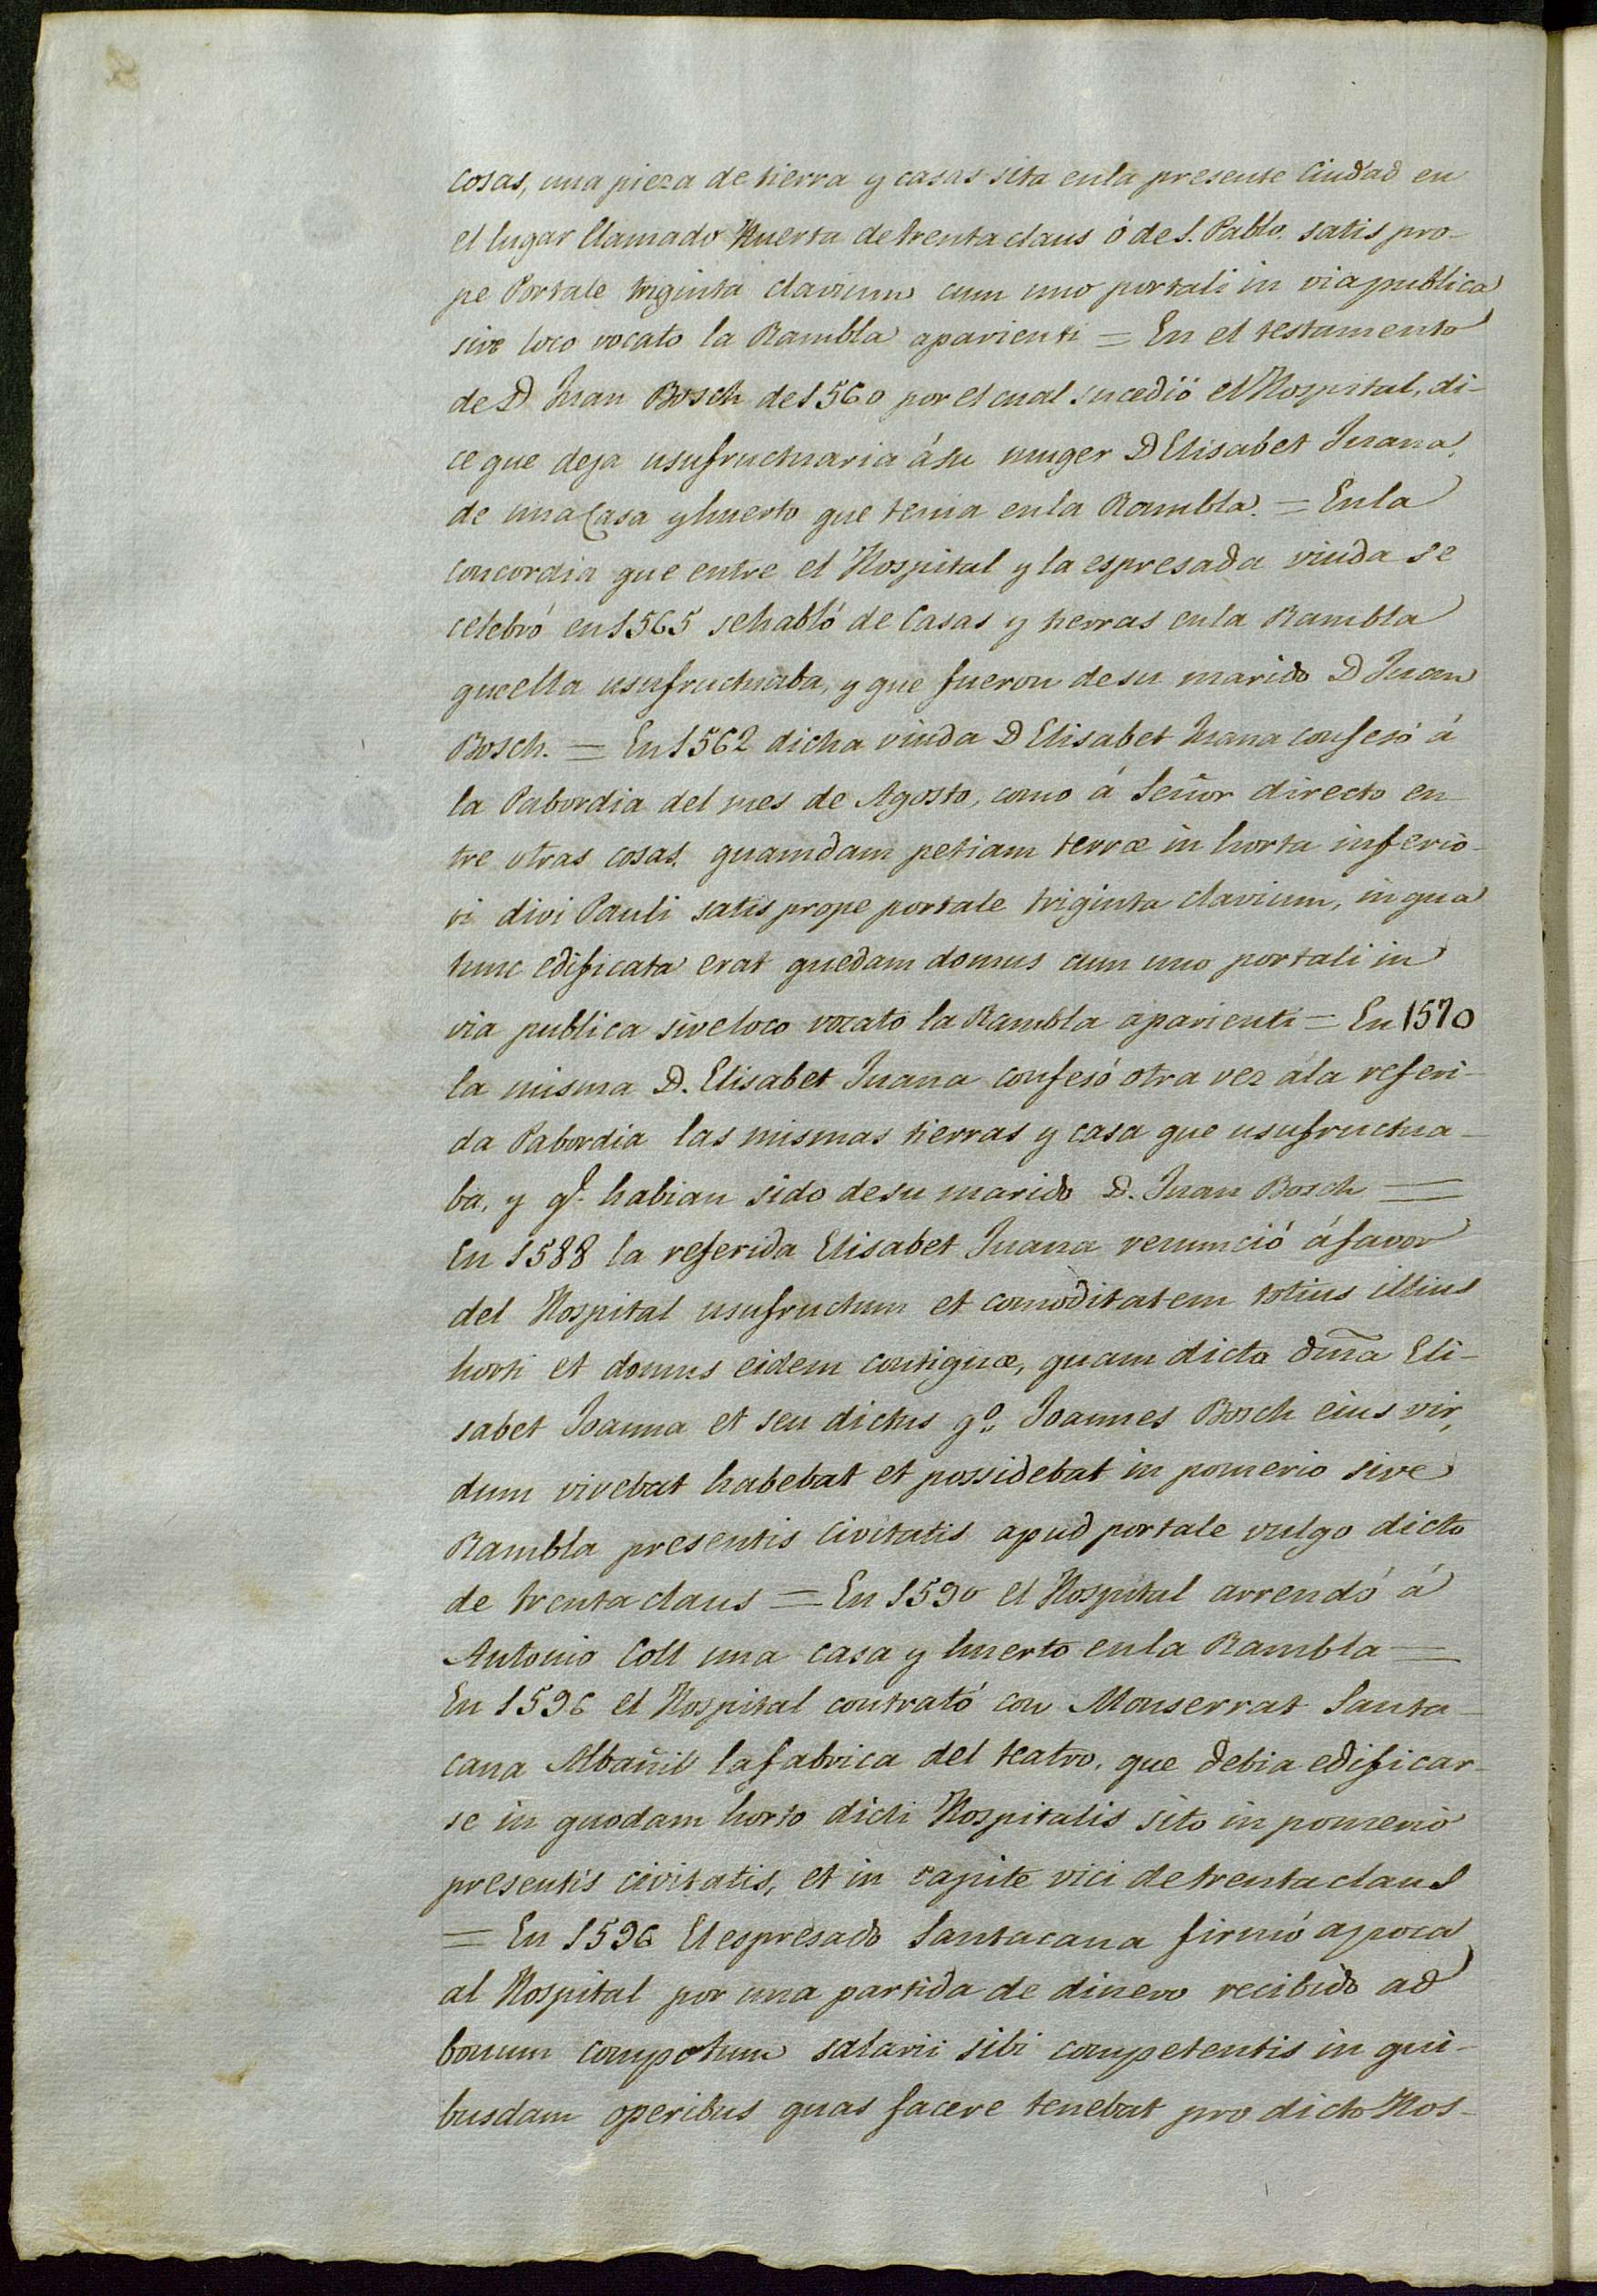 cosas, una pieza de tierra y casas sita en la presente Ciudad en
el lugar llamado Huerta de trenta claus ó de S. Pablo. satis pro-
pe Portale triginta clavium cum uno portali in via publica
sive loco vocato la Rambla aparienti = En el testamento
de D Juan Bosch de 1560 por el cual sucedió el Hospital, di-
ce que deja usufructuaria á su muger D Elisabet Juana,
de una Casa y huerto que tenia en la Rambla. = En la
concordia que entre el Hospital y la espresada viuda se
celebró en 1565 se habló de Casas y tierras en la Rambla
que ella usufructuaba, y que fueron de su marido D Juan
Bosch. = En 1562 dicha viuda D Elisabet Juana confesó á
la Pabordia del mes de Agosto, como á Señor directo en-
tre otras cosas, quamdam petiam terræ in horta inferio-
ri divi Pauli satis prope portale triginta clavium, in qua
tunc edificata erat quedam domus cum uno portali in
via publica sive loco vocato la Rambla aparienti = En 1570
la misma D. Elisabet Juana confesó otra vez á la referi-
da Pabordia las mismas tierras y casa que usufructua-
ba, y q.e habian sido de su marido D. Juan Bosch =
En 1588 la referida Elisabet Juana renunció á favor
del Hospital usufructum et comoditatem totius illius
horti et domus eidem contiguæ, quam dicta dm̃a Eli-
sabet Joanna et seu dictus q.o Joannes Bosch eius vir,
dum vivebat habebat et possidebat in pomerio sive
Rambla presentis Civitatis apud portale vulgo dicto
de trenta claus = En 1590 el Hospital arrendó á
Antonio Coll una casa y huerto en la Rambla =
En 1596 el Hospital contrató con Monserrat Santa-
cana Albañil la fabrica del teatro, que debia edificar-
se in quodam horto dicti Hospitalis sito in pomerio
presentis civitatis, et in capite vici de trenta claus
= En 1596 El espresado Santacana firmó apoca
al Hospital por una partida de dinero recibido ad
bonum compotum salarii sibi competentis in qui-
busdam operibus quas facere tenebat pro dicto Hos-